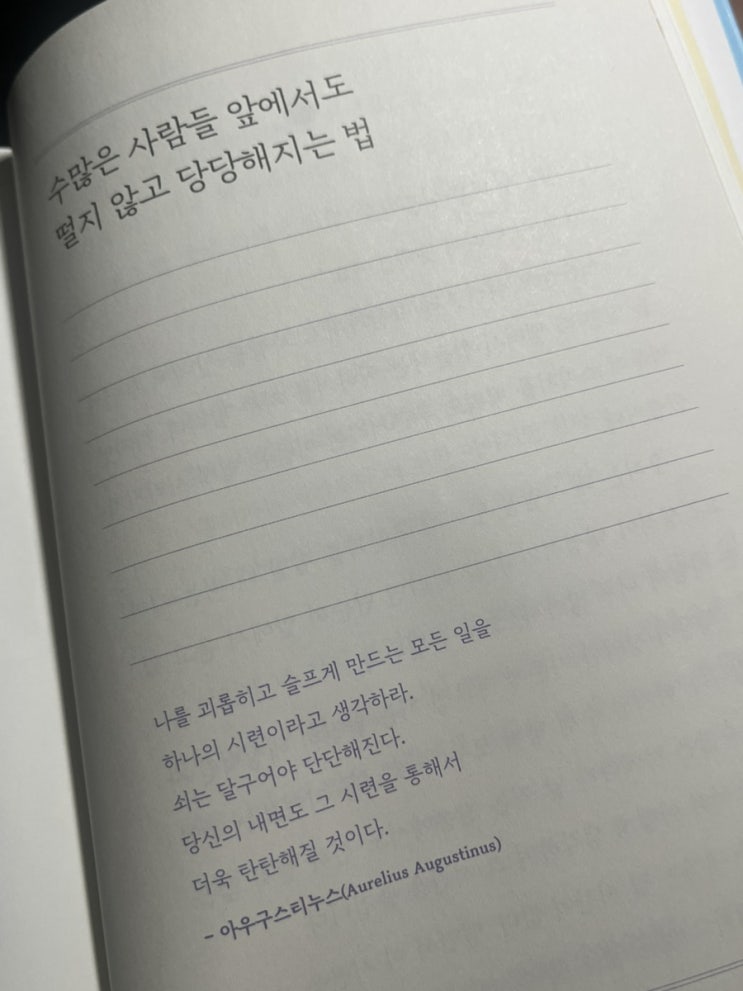 수많은 사람들 앞에서도
떨지 않고 당당해지는 법
나를 괴롭히고 슬프게 만드는 모든 일을
하나의 시련이라고 생각하라.
쇠는 달구어야 단단해진다.
당신의 내면도 그 시련을 통해서
더욱 탄탄해질 것이다.
– 아우구스티누스(Aurelius Augustinus)